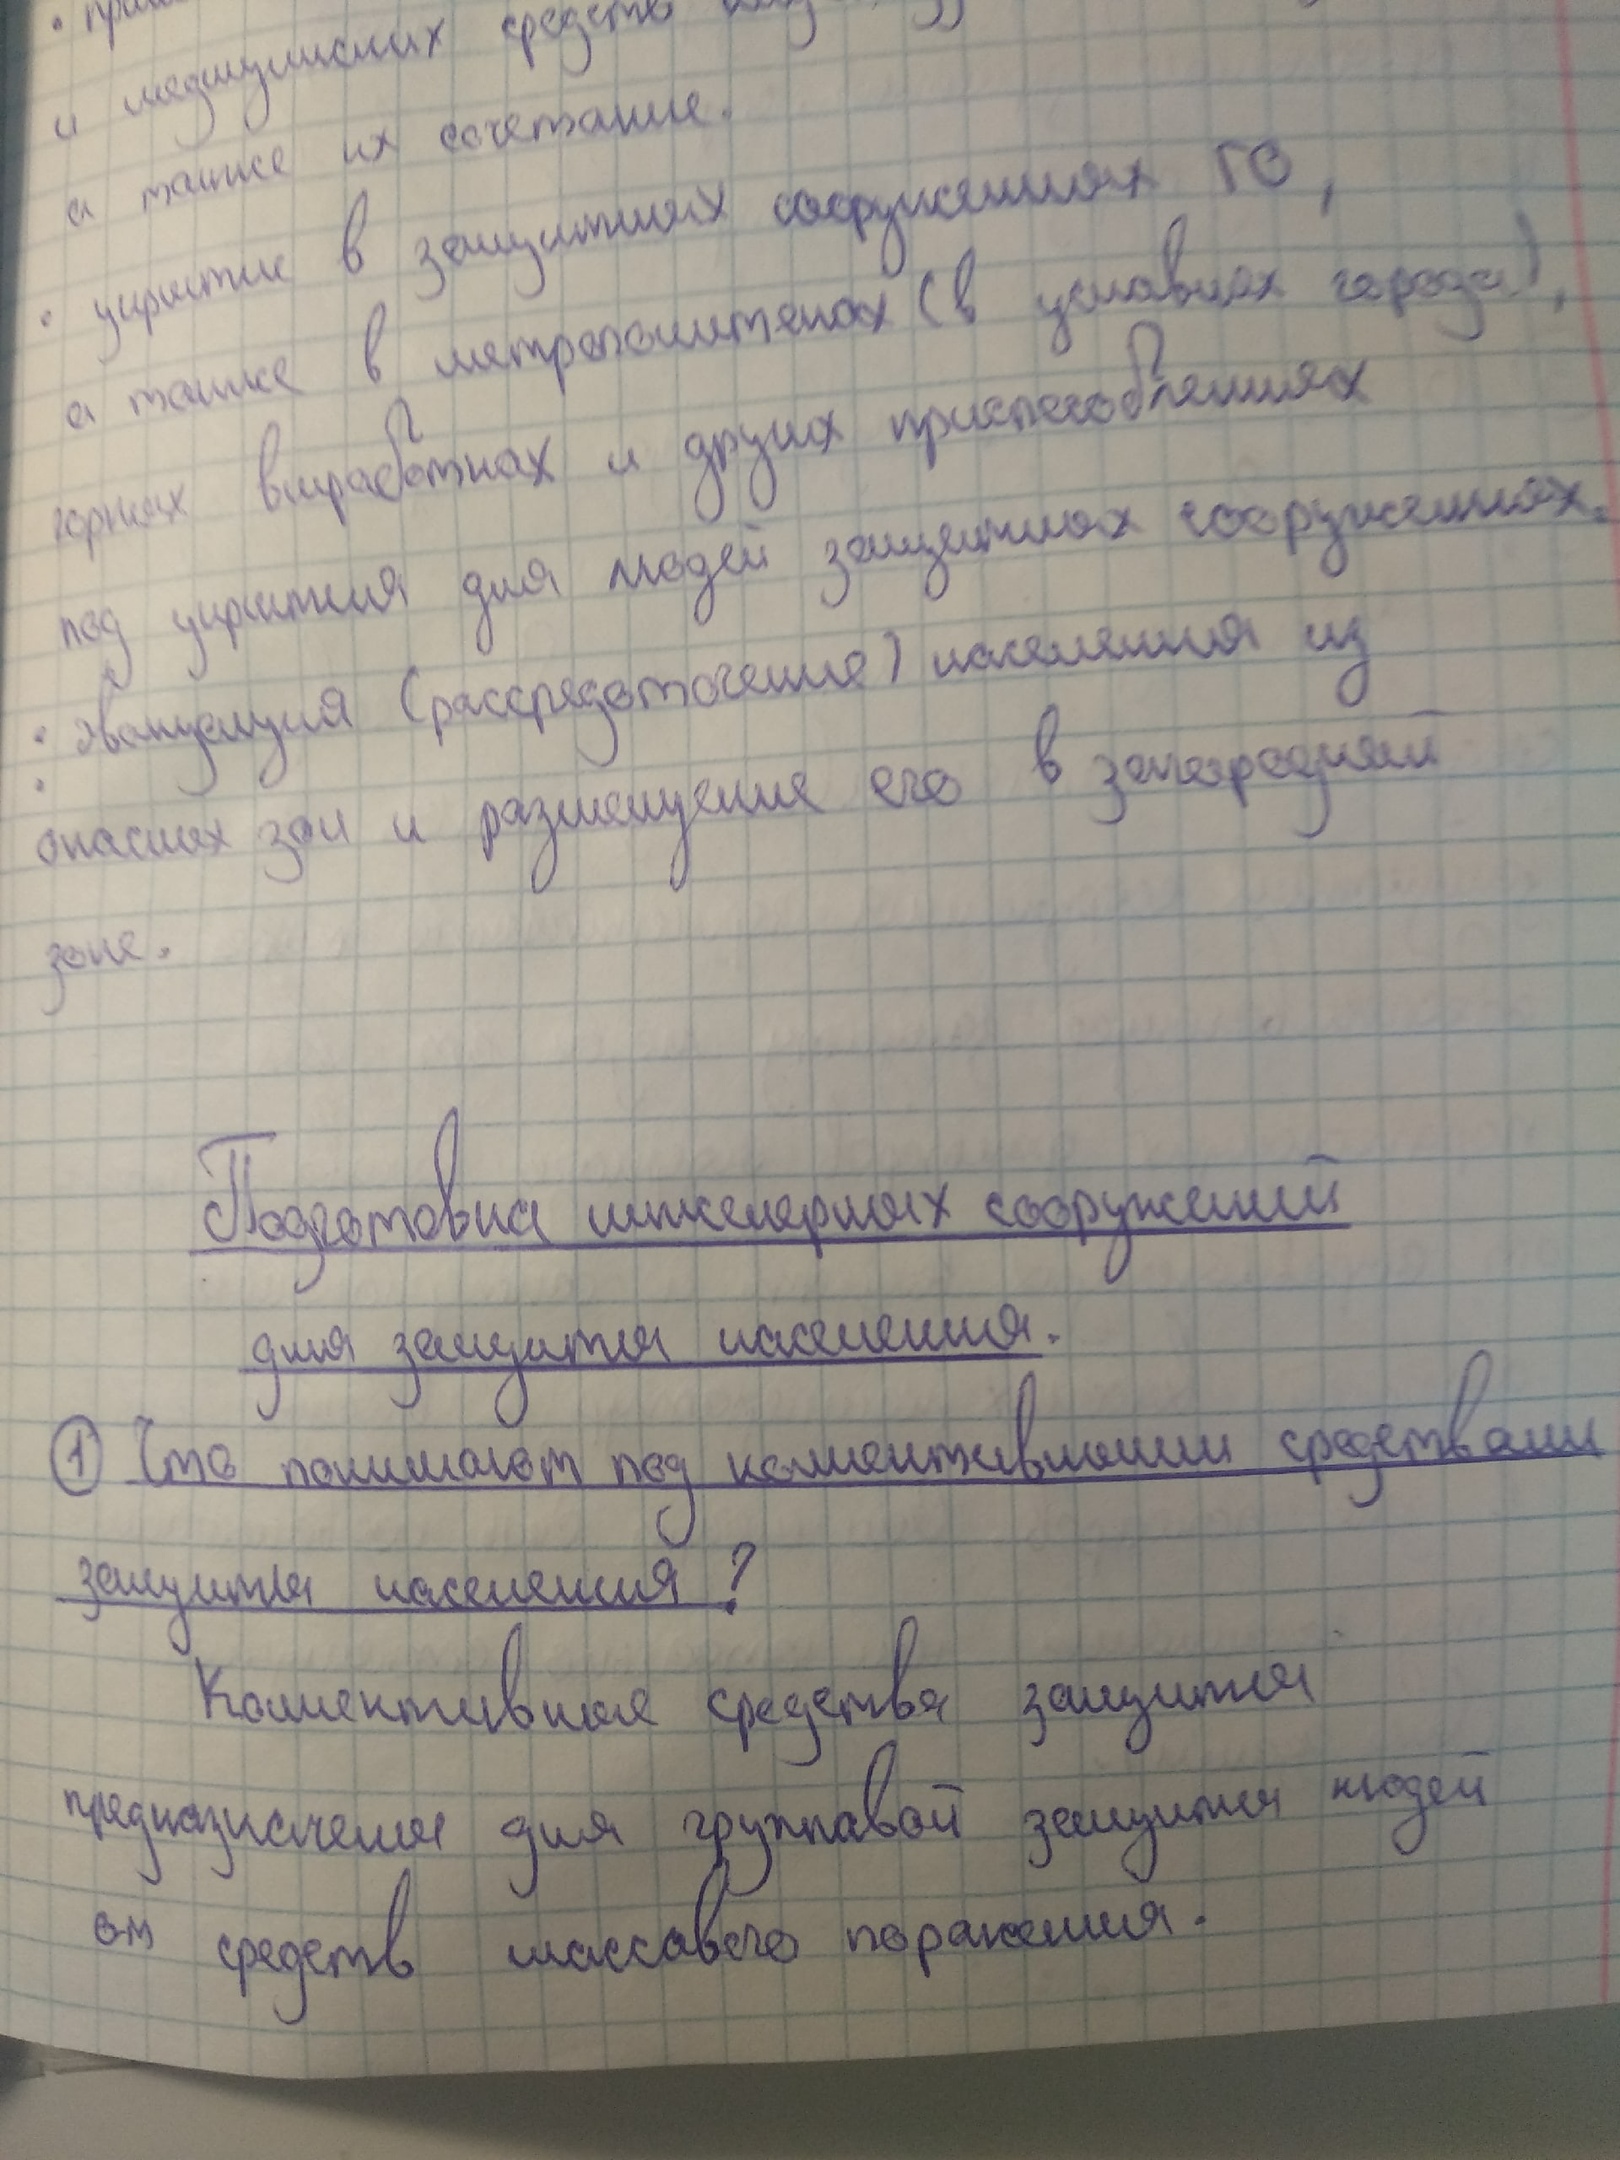 и медицинских средств
а также их сочетание.
• укрытие в защитных сооружениях ГО,
а также в метрополитенах (в условиях города),
горных выработках и других приспособлениях
под укрытия для людей защитных сооружениях.
• эвакуация (рассредоточение) населения из
опасных зон и размещение его в загородной
зоне.
Подготовка инженерных сооружений
для защиты населения.
① Что понимают под коллективными средствами
защиты населения?
Коллективные средства защиты
предназначены для групповой защиты людей
от средств массового поражения.